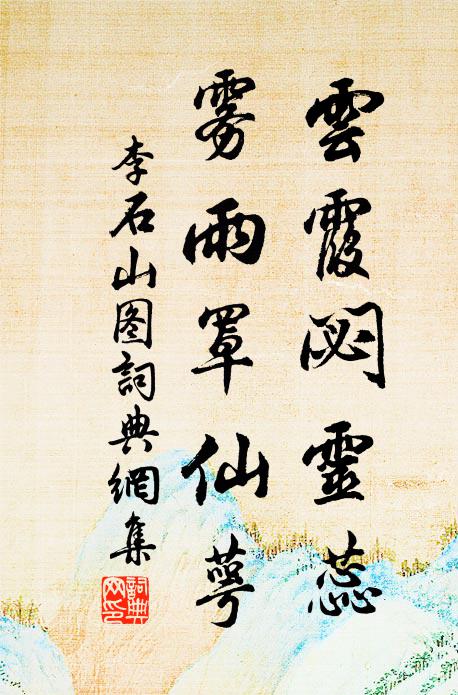 雲霞閟靈蕊
雾雨罩仙萼
李石山图詞典網集
詞典